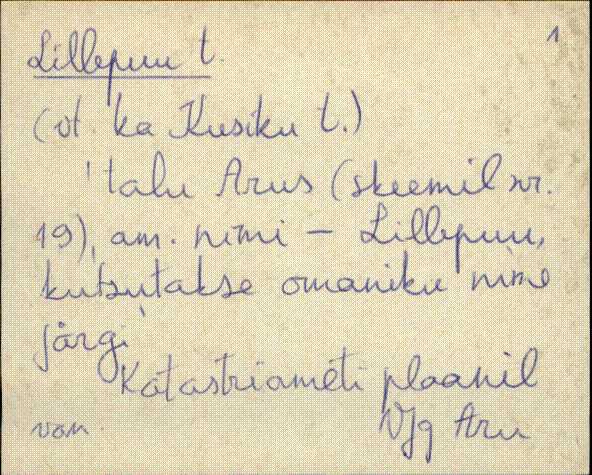 Lillepuu t. 1
(vt. ka Kusiku t.)
'talu Arus (skeemil nr.
19), am. nimi – Lillepuu,
kutsutakse omaniku nime
järgi
Katastriameti plaanil
VJg Aru